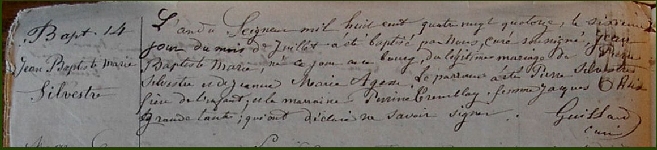 Bapt. 14
Jean Baptiste Marie
Silvestre
L'an du Seigneur mil huit cent quatre vingt quatorze, le sixième
jour du mois de Juillet a été baptisé par Nous, Curé soussigné, Jean
Baptiste Marie, né ce jour au bourg, du légitime mariage de Pierre
Silvestre et de Jeanne Marie Le parrain a été Pierre Silvestre
frère de l'enfant, et la marraine Perrine femme Jaques
grande tante, qui ont déclaré ne savoir signer. Guillard
curé